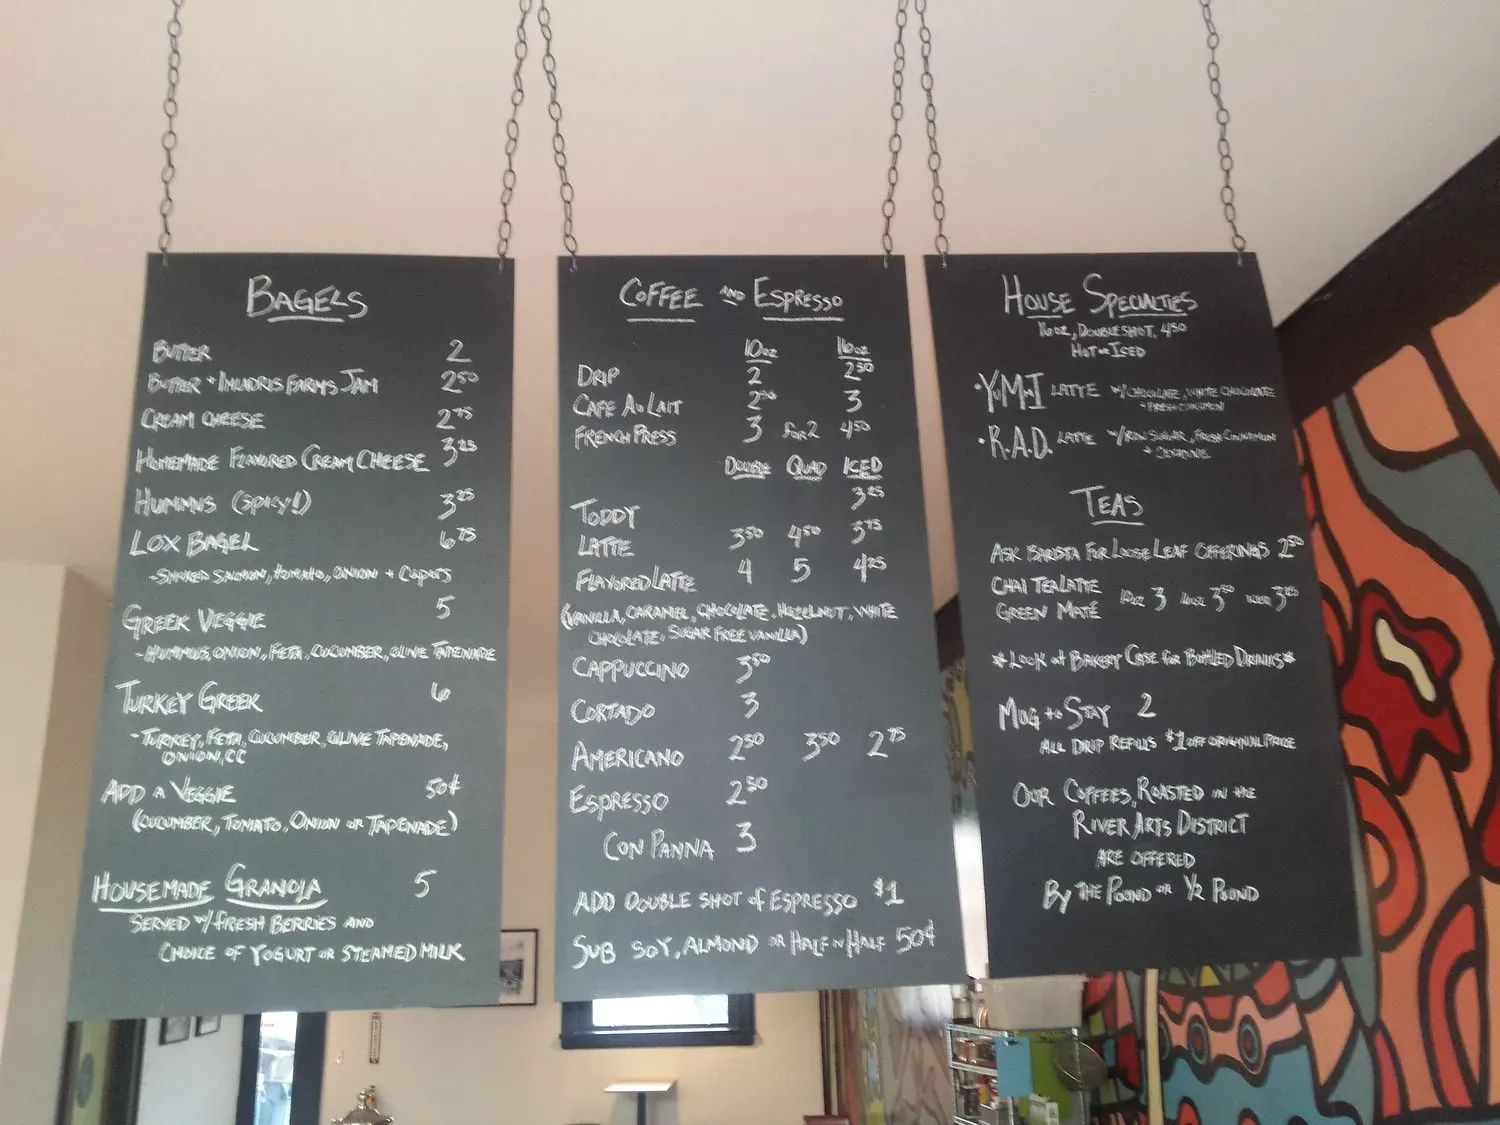 BAGELS
BUTTER 2
BUTTER + IMLADRIS FARMS JAM 2.50
CREAM CHEESE 2.75
HOMEMADE FLAVORED CREAM CHEESE 3.25
HUMMUS (SPICY!) 3.25
LOX BAGEL 6.75
-SMOKED SALMON, TOMATO, ONION + CAPERS
GREEK VEGGIE 5
-HUMMUS, ONION, FETA, CUCUMBER, OLIVE TAPENADE
TURKEY GREEK 6
-TURKEY, FETA, CUCUMBER, OLIVE TAPENADE,
ONION, CC
ADD A VEGGIE 50¢
(CUCUMBER, TOMATO, ONION OR TAPENADE)
HOUSEMADE GRANOLA 5
SERVED W/ FRESH BERRIES AND
CHOICE OF YOGURT OR STEAMED MILK
COFFEE AND ESPRESSO
10oz 16oz
DRIP 2 2.50
CAFE AU LAIT 3
FRENCH PRESS 3 FOR 2 4.50
DOUBLE QUAD ICED
TODDY 3.25
LATTE 3.50 4.50 3.75
FLAVORED LATTE 4 5 4.25
(VANILLA, CARAMEL, CHOCOLATE, HAZELNUT, WHITE
CHOCOLATE, SUGAR FREE VANILLA)
CAPPUCCINO 3.50
CORTADO 3
AMERICANO 2.50 3.50 2.75
ESPRESSO 2.50
CON PANNA 3
ADD DOUBLE SHOT OF ESPRESSO $1
SUB SOY, ALMOND OR HALF N HALF 50¢
HOUSE SPECIALTIES
16oz, DOUBLESHOT, 4.50
HOT OR ICED
•Y.M.I LATTE W/CHOCOLATE, WHITE CHOCOLATE
+ FRESH CINNAMON
•R.A.D. LATTE W/RAW SUGAR, FRESH CINNAMON
TEAS
ASK BARISTA FOR LOOSE LEAF OFFERINGS 2.50
CHAI TEA LATTE
GREEN MATÉ 12oz 3 16oz 3.50 ICED 3.25
*LOOK AT BAKERY CASE FOR BOTTLED DRINKS*
MUG TO STAY 2
ALL DRIP REFILLS $1 OFF ORIGINAL PRICE
OUR COFFEES, ROASTED IN THE
RIVER ARTS DISTRICT
ARE OFFERED
BY THE POUND OR 1/2 POUND